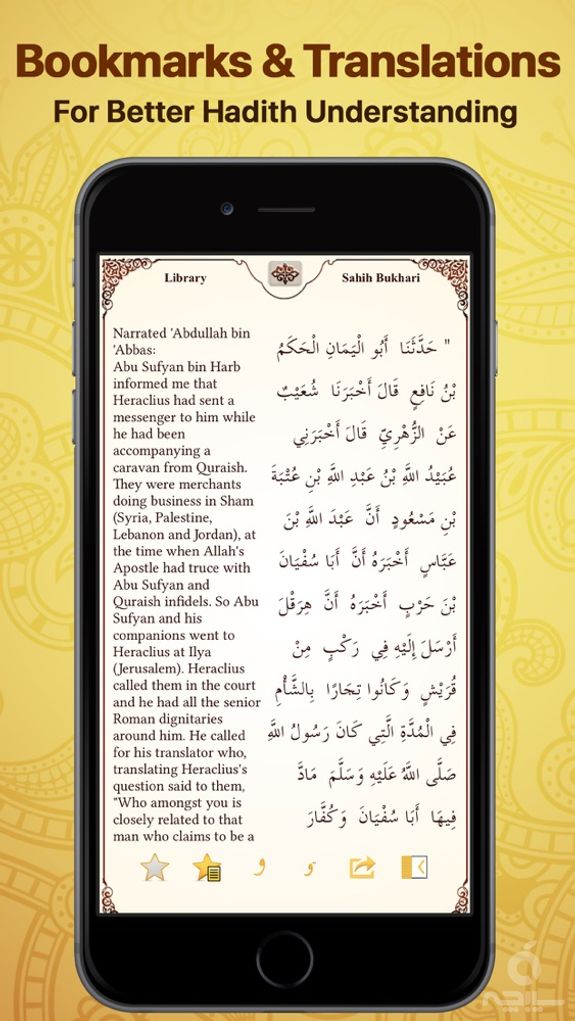 Bookmarks & Translations
For Better Hadith Understanding
Library
Sahih Bukhari
Narrated 'Abdullah bin
'Abbas:
Abu Sufyan bin Harb
informed me that
Heraclius had sent a
messenger to him while
he had been
accompanying a
caravan from Quraish.
They were merchants
doing business in Sham
(Syria, Palestine,
Lebanon and Jordan), at
the time when Allah's
Apostle had truce with
Abu Sufyan and
Quraish infidels. So Abu
Sufyan and his
companions went to
Heraclius at Ilya
(Jerusalem). Heraclius
called them in the court
and he had all the senior
Roman dignitaries
around him. He called
for his translator who,
translating Heraclius's
question said to them,
"Who amongst you is
closely related to that
man who claims to be a
" حَدَّثَنَا أَبُو الْيَمَانِ الْحَكَمُ
بْنُ نَافِعٍ قَالَ أَخْبَرَنَا شُعَيْبٌ
عَنْ الزُّهْرِيِّ قَالَ أَخْبَرَنِي
عُبَيْدُ اللَّهِ بْنُ عَبْدِ اللَّهِ بْنِ عُتْبَةَ
بْنِ مَسْعُودٍ أَنَّ عَبْدَ اللَّهِ بْنَ
عَبَّاسٍ أَخْبَرَهُ أَنَّ أَبَا سُفْيَانَ
بْنَ حَرْبٍ أَخْبَرَهُ أَنَّ هِرَقْلَ
أَرْسَلَ إِلَيْهِ فِي رَكْبٍ مِنْ
قُرَيْشٍ وَكَانُوا تِجَارًا بِالشَّأْمِ
فِي الْمُدَّةِ الَّتِي كَانَ رَسُولُ اللَّهِ
صَلَّى اللَّهُ عَلَيْهِ وَسَلَّمَ مَادَّ
فِيهَا أَبَا سُفْيَانَ وَكُفَّارَ